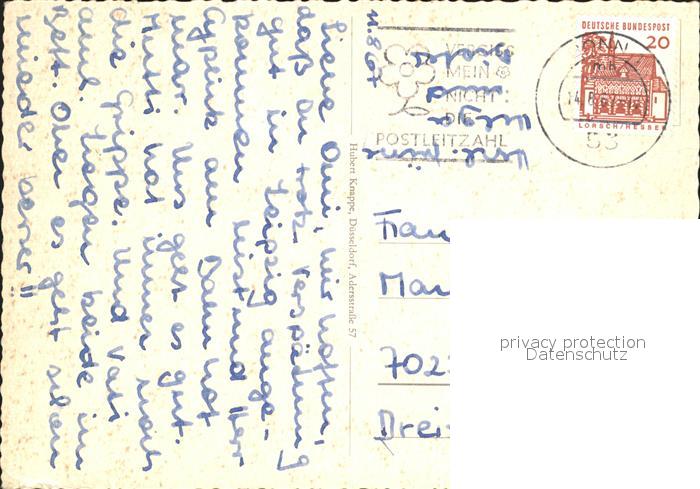 11.8.67
Liebe Omi, wir hoffen,
daß Du trotz Verspätung
gut in Leipzig ange-
kommen bist und Herr
am Bahnhof
war. Uns geht es gut.
Mutti hat immer noch
die Grippe. Und Vati
auch. Liegen beide im
Bett. Aber es geht schon
wieder besser!!
Hubert Knappe, Düsseldorf, Adersstraße 57
VERGISS
MEIN
NICHT
DIE
POSTLEITZAHL
DEUTSCHE BUNDESPOST
20
LORSCH/HESSEN
53
Frau
Mar
702
Drei
privacy protection
Datenschutz